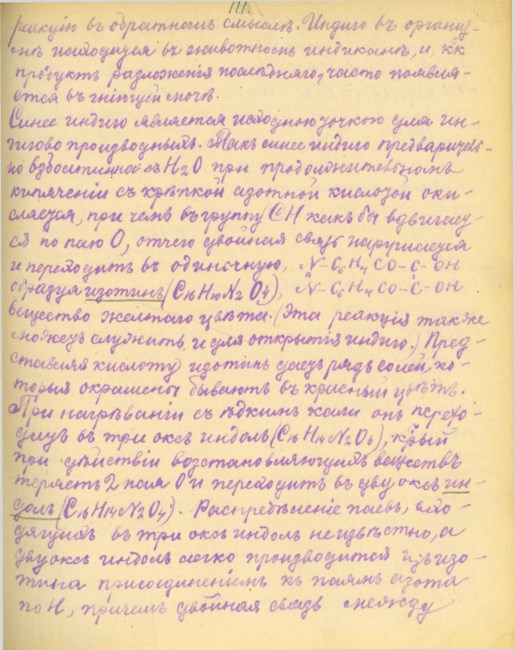 111.
реакцію въ обратномъ смыслѣ. Индиго въ орга
мѣ находится въ животномъ индиканѣ, и, кк
продуктъ разложенія послѣдняго, часто появля-
ется въ гніющей мочѣ.
Синее индиго является исходною точкой для ин-
дигово производныхъ. Такъ синее индиго предварител-
но взболтанное съ H2O при продолжительномъ
кипяченіи съ крѣпкой азотной кислотой оки-
сляется, при чемъ въ группу CH какъ бы вдвигает-
ся по паю O, отчего двойная связь нарушается
и переходитъ въ одиночную, N-C6H4CO-C-OH
образуя изотинъ (C16H10N2O4), N-C6H4CO-C-OH
вещество желтаго цвѣта. (Эта реакція также
можетъ служить и для открытія индиго.) Пред-
ставляя кислоту изотинъ даетъ рядъ солей, ко-
торыя окрашены бываютъ въ красный цвѣтъ.
При нагрѣваніи съ ѣдкимъ кали онъ перехо-
дитъ въ три оксъ индолъ (C16H14N2O6), кӷрый
при дѣйствіи возстановляющихъ веществъ
теряетъ 2 пая O и переходитъ въ двуоксъ ин-
долъ (C16H14N2O4). Распредѣленіе паевъ, вхо-
дящихъ въ три оксъ индолъ неизвѣстно, а
двуоксъ индолъ легко производится изъ изо-
тина присоединеніемъ къ паямъ азота
по H, причемъ двойная связь между